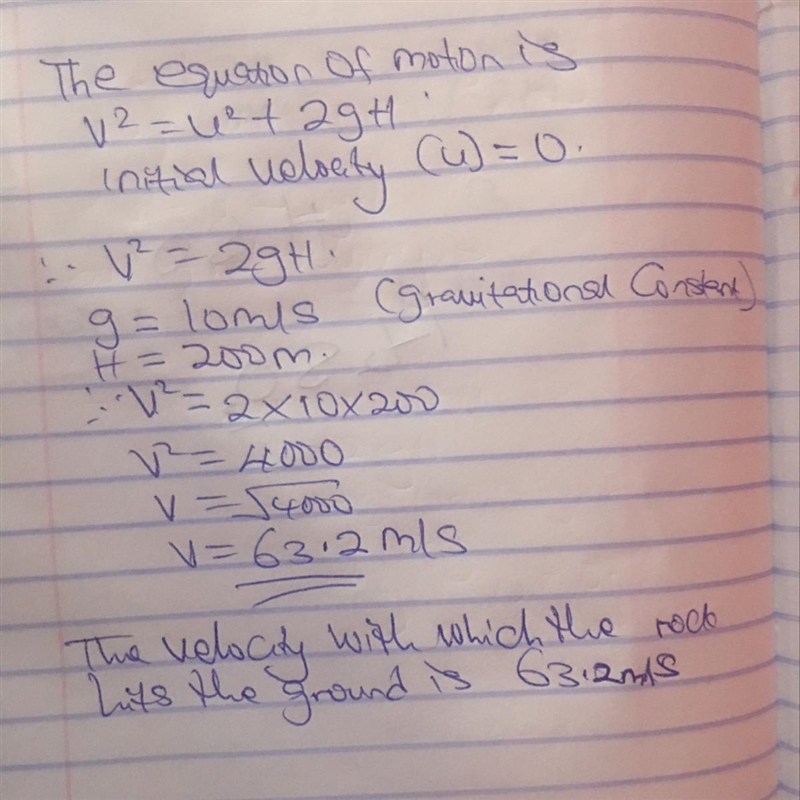 The equation of motion is
V² = u² + 2gH
initial velocity (u) = 0.
∴ V² = 2gH.
g = 10m/s (gravitational Constant)
H = 200m.
∴ V² = 2×10×200
V² = 4000
V = √4000
V = 63.2 m/s
The velocity with which the rock
hits the ground is 63.2m/s